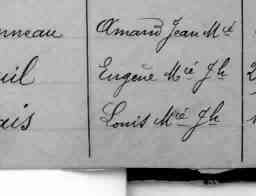 nneau Amand Jean Mie
uil Eugène Mie Jh 2
ais Louis Mie Jh